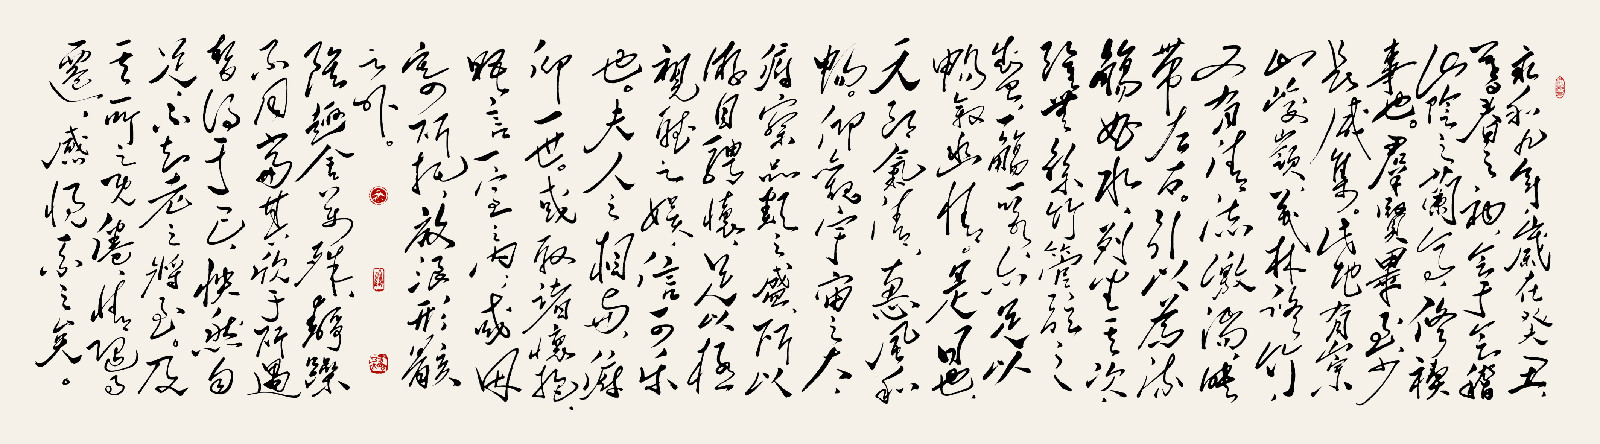 永和九年，歲在癸丑，
暮春之初，會于會稽
山陰之蘭亭，修禊
事也。群賢畢至，少
長咸集。此地有崇
山峻嶺，茂林修竹，
又有清流激湍，映
帶左右。引以為流
觴曲水，列坐其次，
雖無絲竹管弦之
盛，一觴一詠，亦足以
暢敘幽情。是日也，
天朗氣清，惠風和
暢。仰觀宇宙之大，
俯察品類之盛，所以
遊目騁懷，足以極
視聽之娛，信可樂
也。夫人之相與，俯
仰一世。或取諸懷抱，
晤言一室之內；或因
寄所託，放浪形骸
之外。
雖趣舍萬殊，靜躁
不同，當其欣于所遇
暫得于己，快然自
足，不知老之將至。及
其所之既倦，情隨事
遷，感慨系之矣。